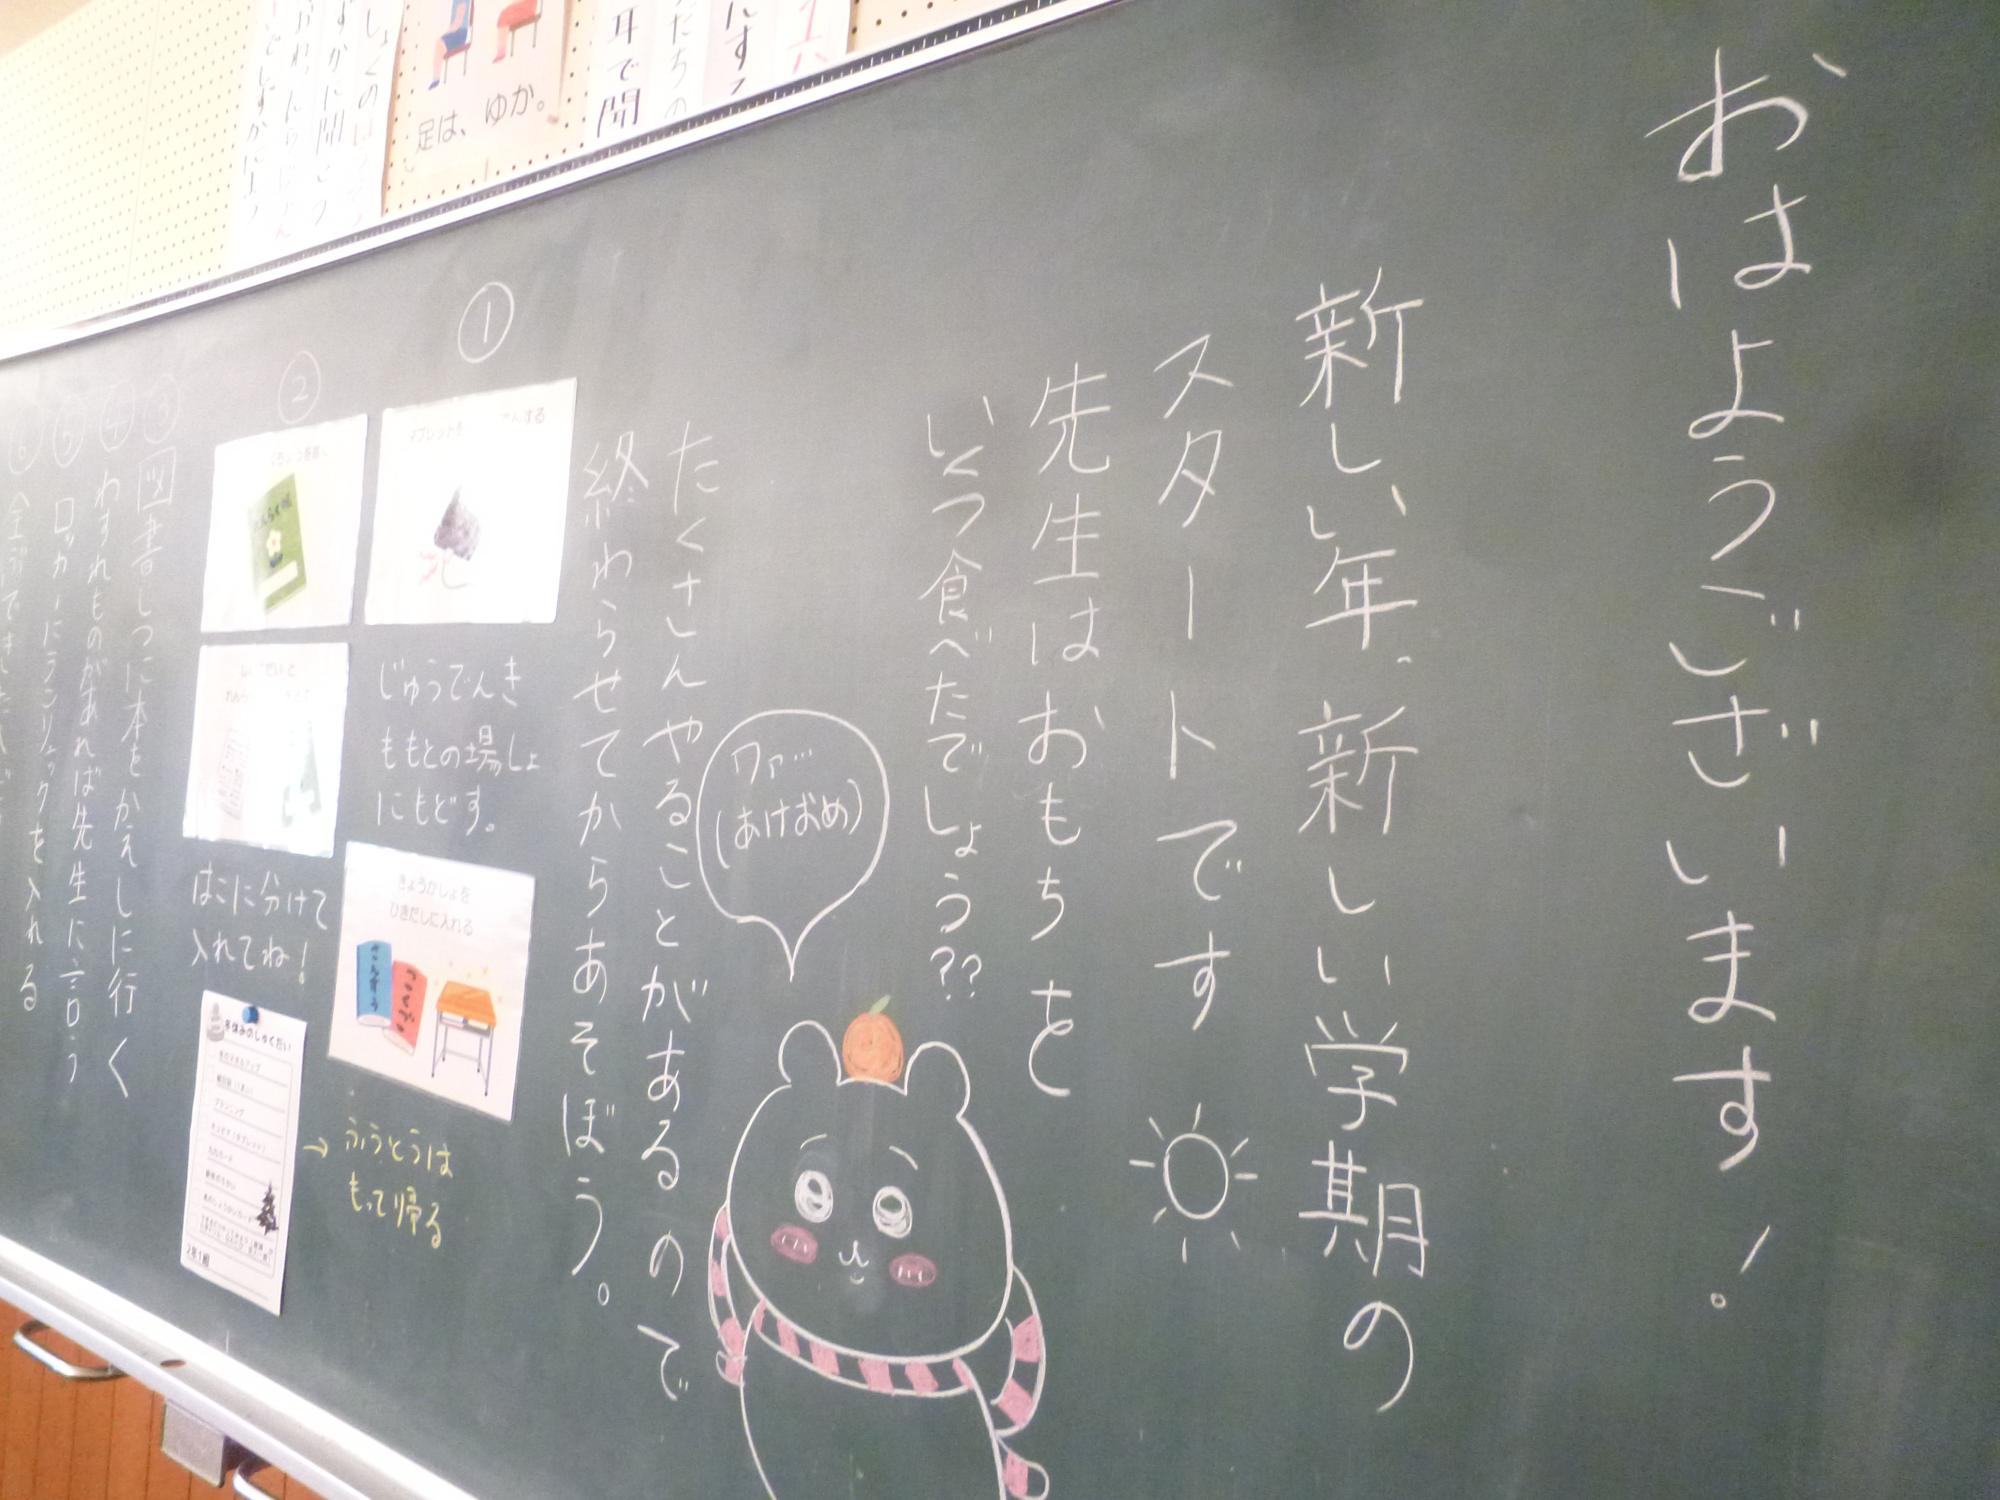 おはようございます！
新しい年、新しい学期の
スタートです
先生はおもちを
いくつ食べたでしょう??
ワァ…
(あけおめ)
たくさんやることがあるので
終わらせてからあそぼう。
①
じゅうでんき
ももとの場しょ
にもどす。
きょうかしょを
ひきだしに入れる
さんすう
こくご
→ふうとうは
もって帰る
②
はこに分けて
入れてね！
冬休みのしゅくだい
2年1組
③図書しつに本をかえしに行く
④わすれものがあれば先生に言う
⑤ロッカーにランリュックを入れる
⑥
足は、ゆか。
耳で聞